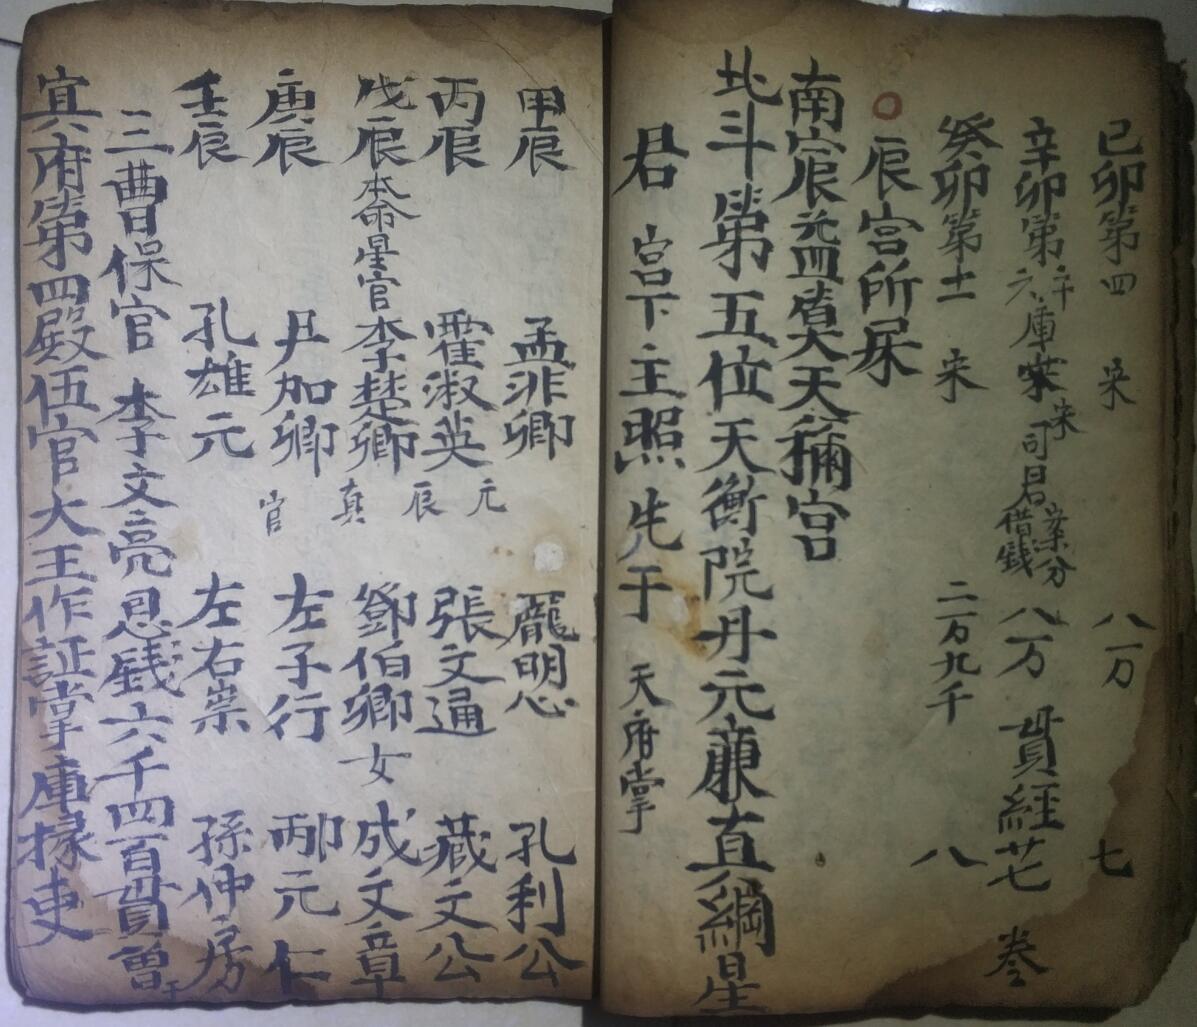 己卯第四 宋 八万 七
辛卯第六十六庫 宋 司君 案分借銭 八万 貫経芒 卷
癸卯第十一 宋 二万九千 八
辰宫所属
南宸元皿省大天禰宫
北斗第五位天衡院丹元廉真綱星
君 宫下主照 先于 天府掌
甲辰 孟非卿 龎明心 孔利公
丙辰 霍淑英 張文通 藏文公
戊辰本命星官李楚卿 鄧伯卿女 成文章
庚辰 尹加卿 左子行 邴元仁
壬辰 孔雄元 左右宗 孫仲房
元辰真官
三曹保官 李文亮 恩銭六千四百貫曾于
冥府第四殿伍官大王作証掌庫掾吏